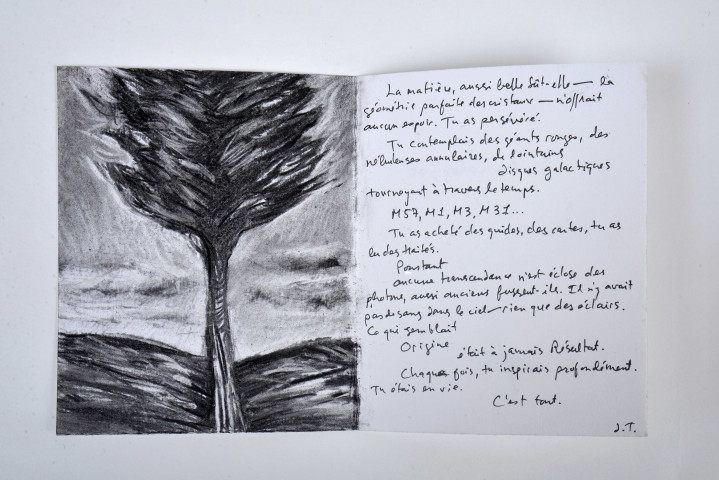 La matière, aussi belle fût-elle — la
géométrie parfaite des cristaux — n'offrait
aucun espoir. Tu as persévéré.
Tu contemplais des géants rouges, des
nébuleuses annulaires, de lointains
disques galactiques
tournoyant à travers le temps.
M57, M1, M3, M31...
Tu as acheté des guides, des cartes, tu as
lu des traités.
Pourtant
aucune transcendance n'est éclose des
photons, aussi anciens fussent-ils. Il n'y avait
pas de sang dans le ciel — rien que des éclairs.
Ce qui semblait
Origine
était à jamais Résultat.
Chaque fois, tu inspirais profondément.
Tu étais en vie.
C'est tout.
J.T.